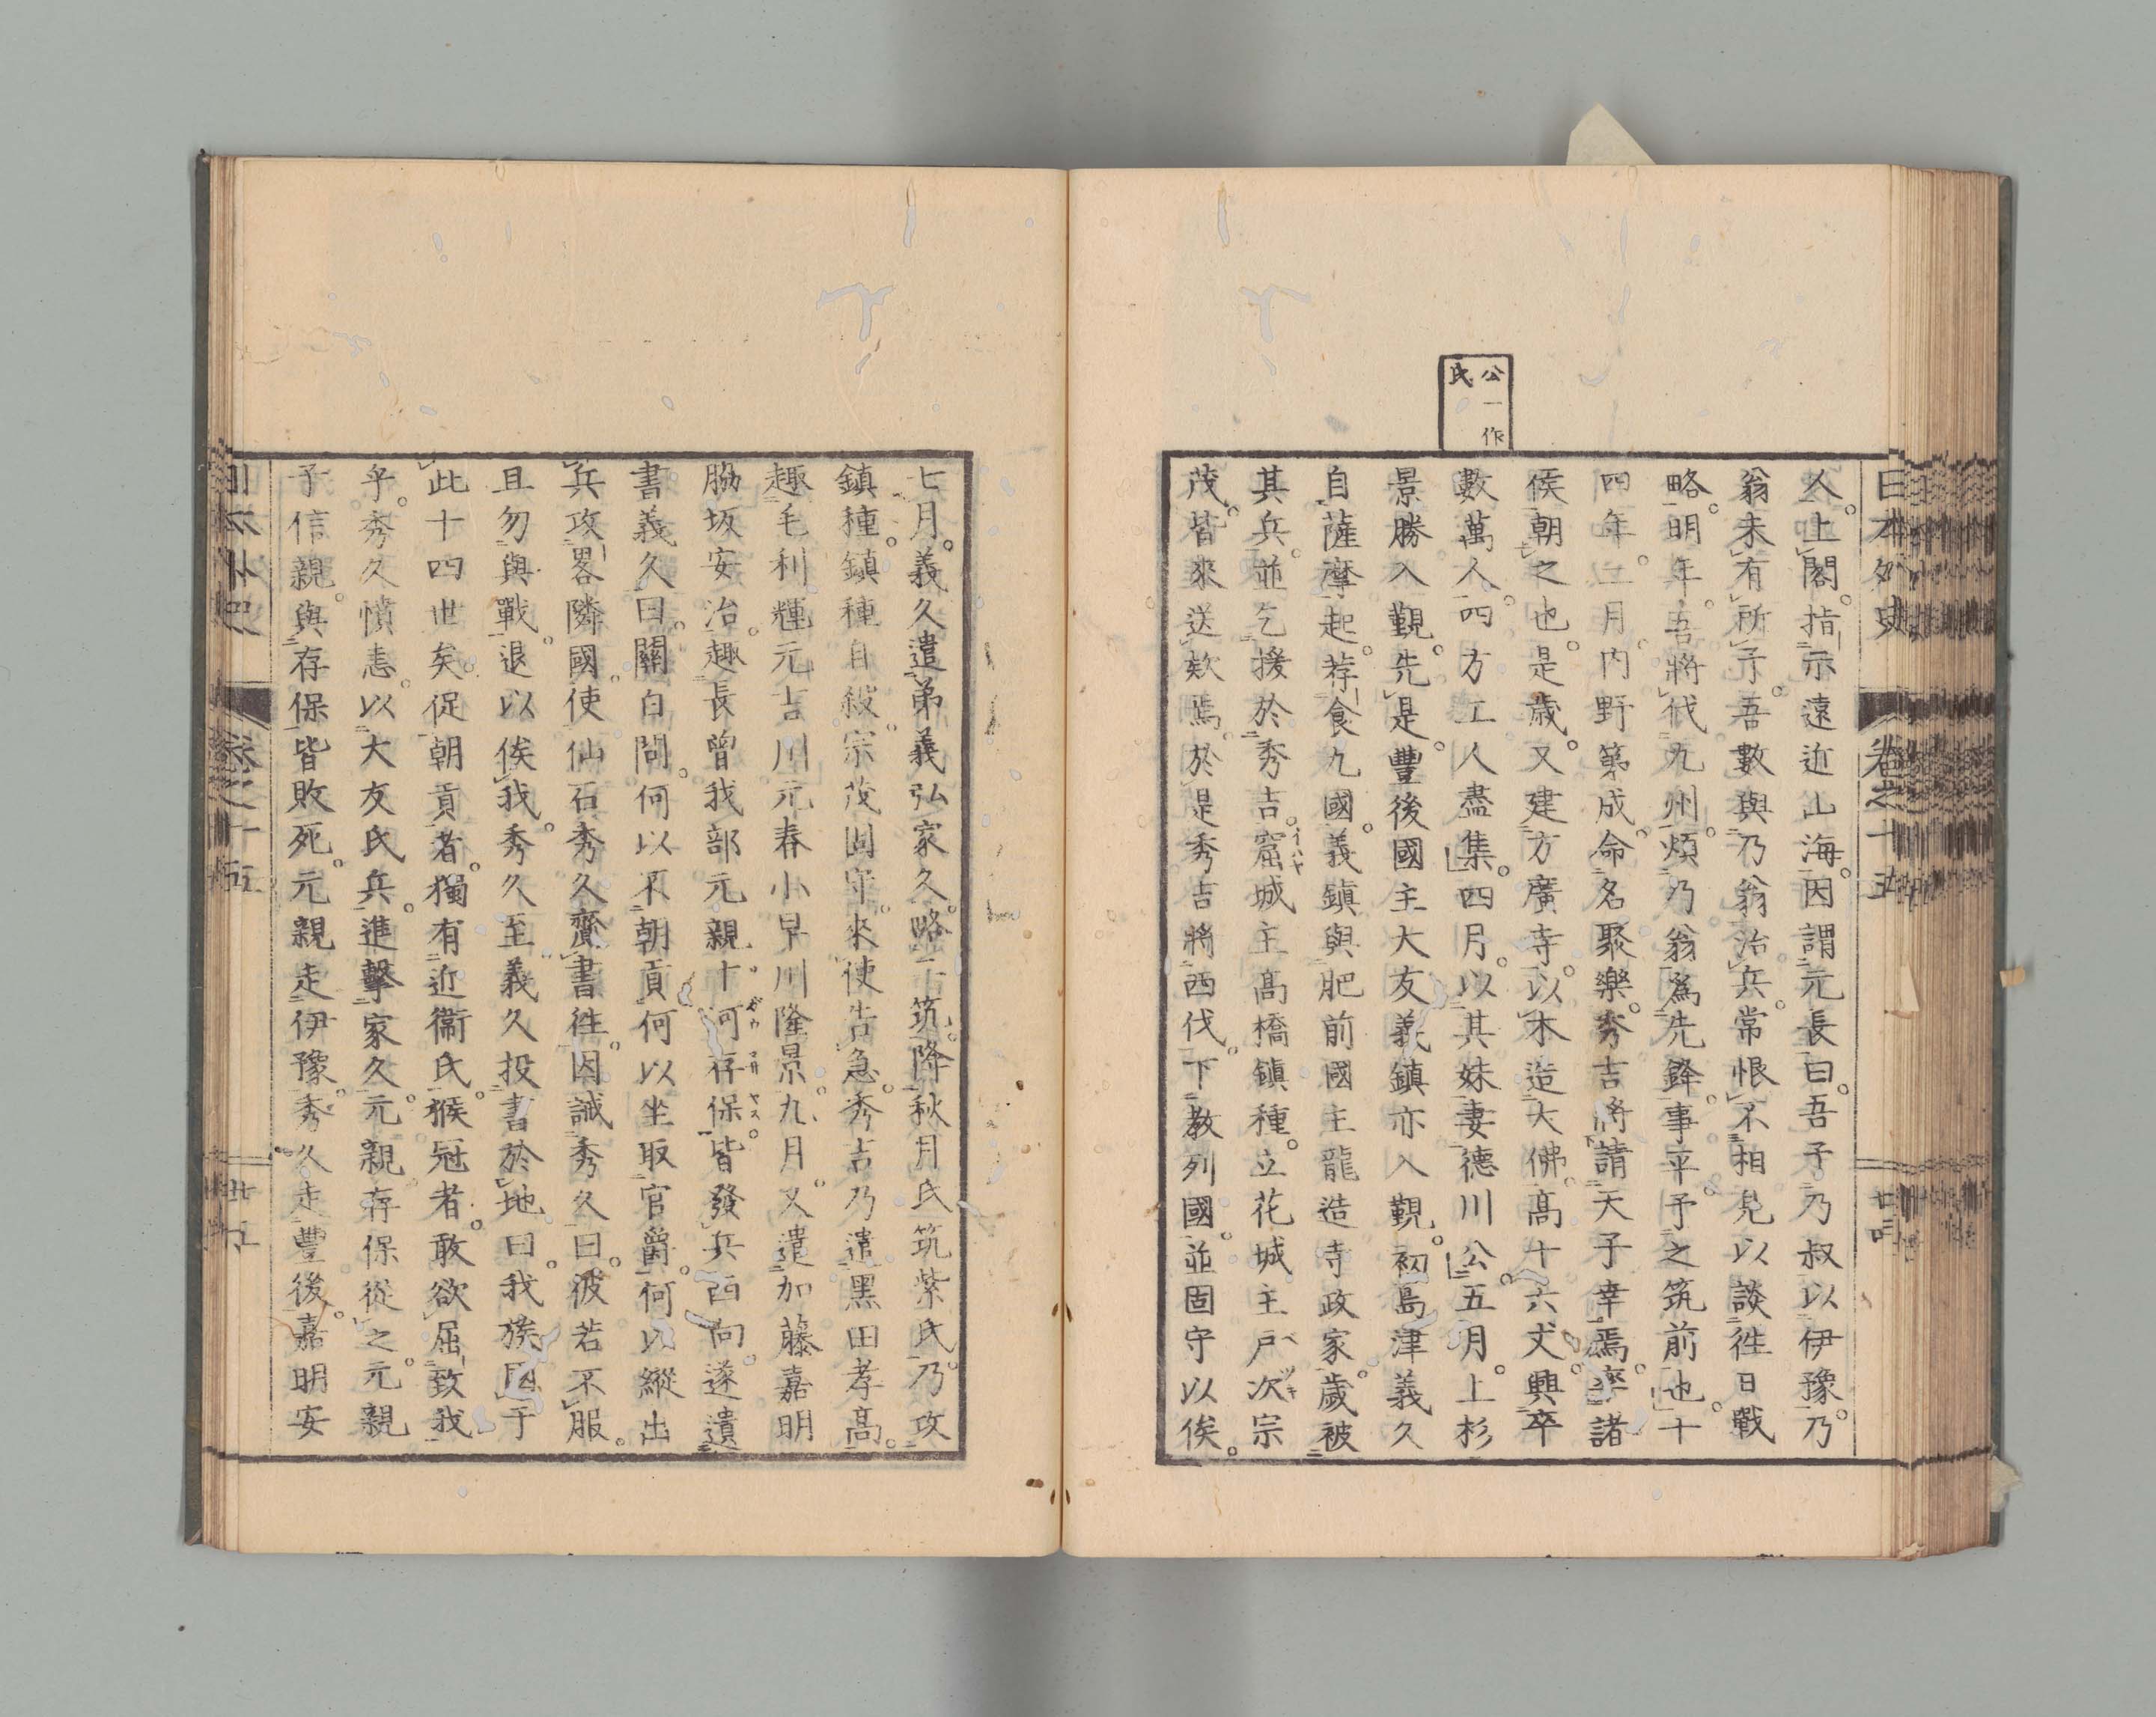 日本外史 卷之十五 廿四
公一作
氏
人。上閣。指示遠近山海。因謂元長曰。吾子乃叔以伊豫。乃
翁未有所予。吾數與乃翁治兵。常恨不相見以談徃日戰
略。明年。吾將伐九州。煩乃翁爲先鋒。事平。予之筑前也。十
四年。二月。内野第成。命名聚樂。秀吉將請天子幸焉。率諸
侯朝之也。是歲。又建方廣寺。以木造大佛。高十六丈。興卒
數萬人。四方工人盡集。四月。以其妹妻德川公。五月。上杉
景勝入覲。先是。豐後國主大友義鎮亦入覲。初島津義久
自薩摩起。荐食九國。義鎮與肥前國主龍造寺政家。歲被
其兵。並乞援於秀吉。窟イハヤ城主高橋鎮種。立花城主戸ベ次ツギ宗
茂。皆來送欵焉。於是秀吉將西伐。下教列國。並固守以俟。
七月。義久遣弟義弘家久。略二筑。降秋月氏筑紫氏。乃攻
鎮種。鎮種自殺。宗茂固守。來使告急。秀吉乃遣黑田孝高。
趣毛利輝元吉川元春小早川隆景。九月。又遣加藤嘉明
脇坂安治。趣長曾我部元親十河ガウ存マサ保ヤス。皆發兵西向。遂遺
書義久曰。關白問。何以不朝貢。何以坐取官爵。何以縱出
兵攻畧隣國。使仙石秀久齎書徃。因誡秀久曰。彼若不服。
且勿與戰。退以俟我。秀久至。義久投書於地曰。我族國于
此十四世矣。促朝貢者。獨有近衞氏。猴冠者。敢欲屈致我
乎。秀久憤恚。以大友氏兵。進擊家久。元親存保從之。元親
子信親。與存保皆敗死。元親走伊豫。秀久走豐後。嘉明安
卷之十五 廿五